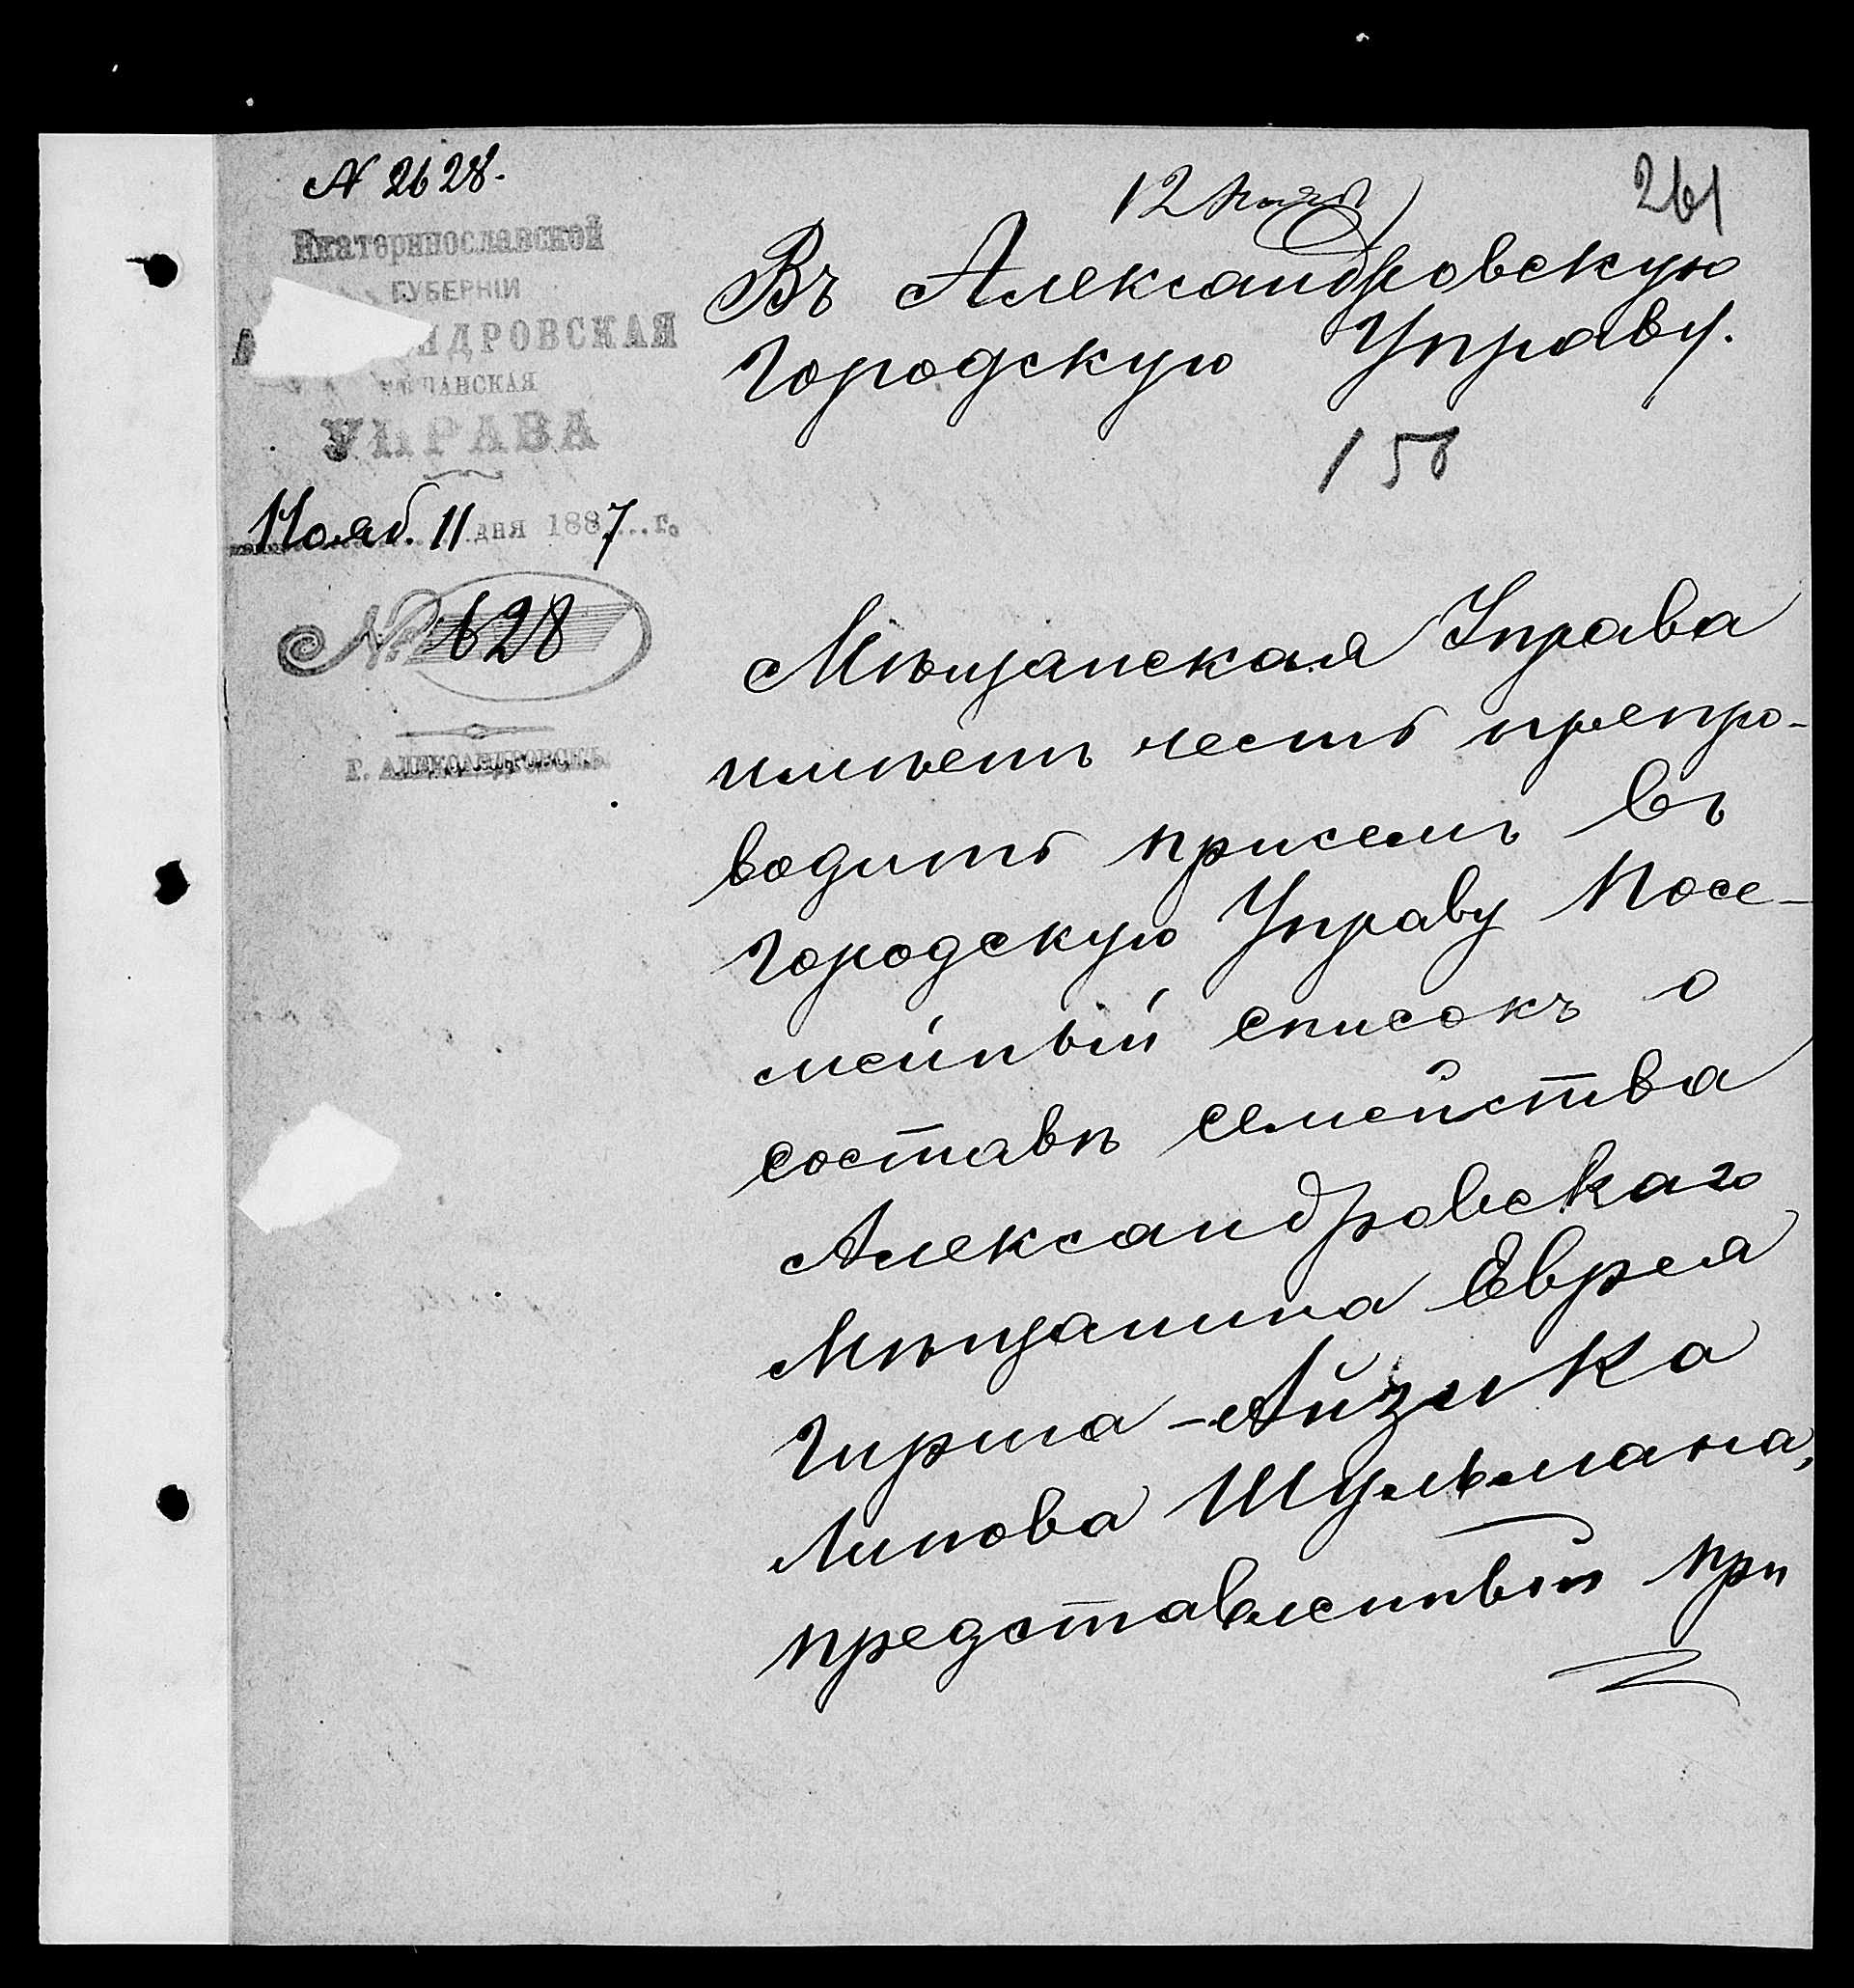 № 2628.
12 Нояб
261
Екатеринославской
ГУБЕРНІИ
НДРОВСКАЯ
ЩАНСКАЯ
УПРАВА
Нояб. 11 дня 1887 г.
№ 628
Г. АЛЕКСАНДРОВСКЪ.
Въ Александровскую
Городскую Управу.
158
Мѣщанская Управа
имѣетъ честь препро-
водить присемъ въ
Городскую Управу Посе-
мейный списокъ о
составѣ семейства
Александровскаго
Мѣщанина Еврея
Гирша-Айзика
Липова Шульмана,
представленный при